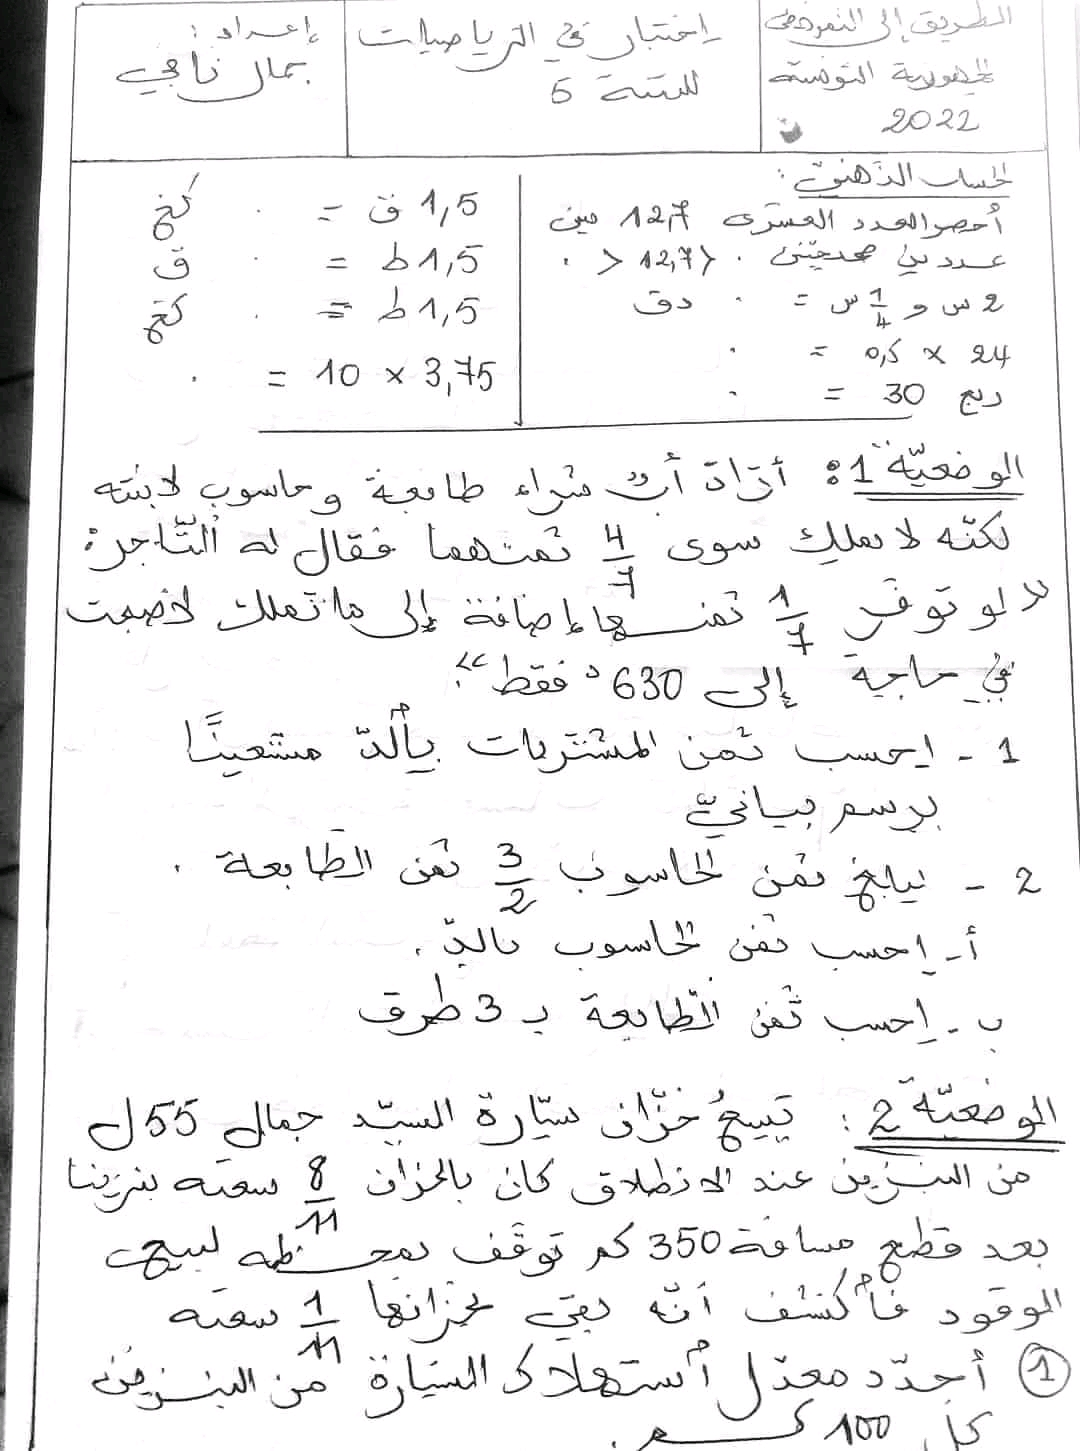 الطريق إلى النموذجي
الجمهورية التونسية
2022
إختبار في الرياضيات
للسنة 6
إعداد :
جمال ناجي
الحساب الذهني :
أحصر العدد العشري 12,7 بين
عددين صحيحين . < 12,7 < .
2 س و 1/4 س = . دق
24 × 0,5 = .
ربع 30 = .
1,5 ق = . كغ
1,5 ط = . ق
1,5 ط = . كغ
3,75 × 10 = .
الوضعيّة 1: أراد أب شراء طابعة وحاسوب لابنته
لكنّه لا يملك سوى 4/7 ثمنهما فقال له التّاجر:
« لو توفّر 1/7 ثمنها إضافة إلى ما تملك لأصبحت
في حاجة إلى 630 د فقط »
1 - احسب ثمن المشتريات بالدّ مستعينًا
برسم بيانيّ
2 - يبلغ ثمن الحاسوب 3/2 ثمن الطابعة .
أ - احسب ثمن الحاسوب بالدّ .
ب - احسب ثمن الطّابعة بـ 3 طرق
الوضعيّة 2 : تسع خزّان سيّارة السيّد جمال 55 ل
من البنزين عند الانطلاق كان بالخزان 8/11 سعته بنزينا
بعد قطع مسافة 350 كم توقّف بمحطة لبيع
الوقود فاكتشف أنّه بقي بخزانها 1/11 سعته
1 أحدّد معدّل استهلاك السيّارة من البنزين
كلّ 100 كم .